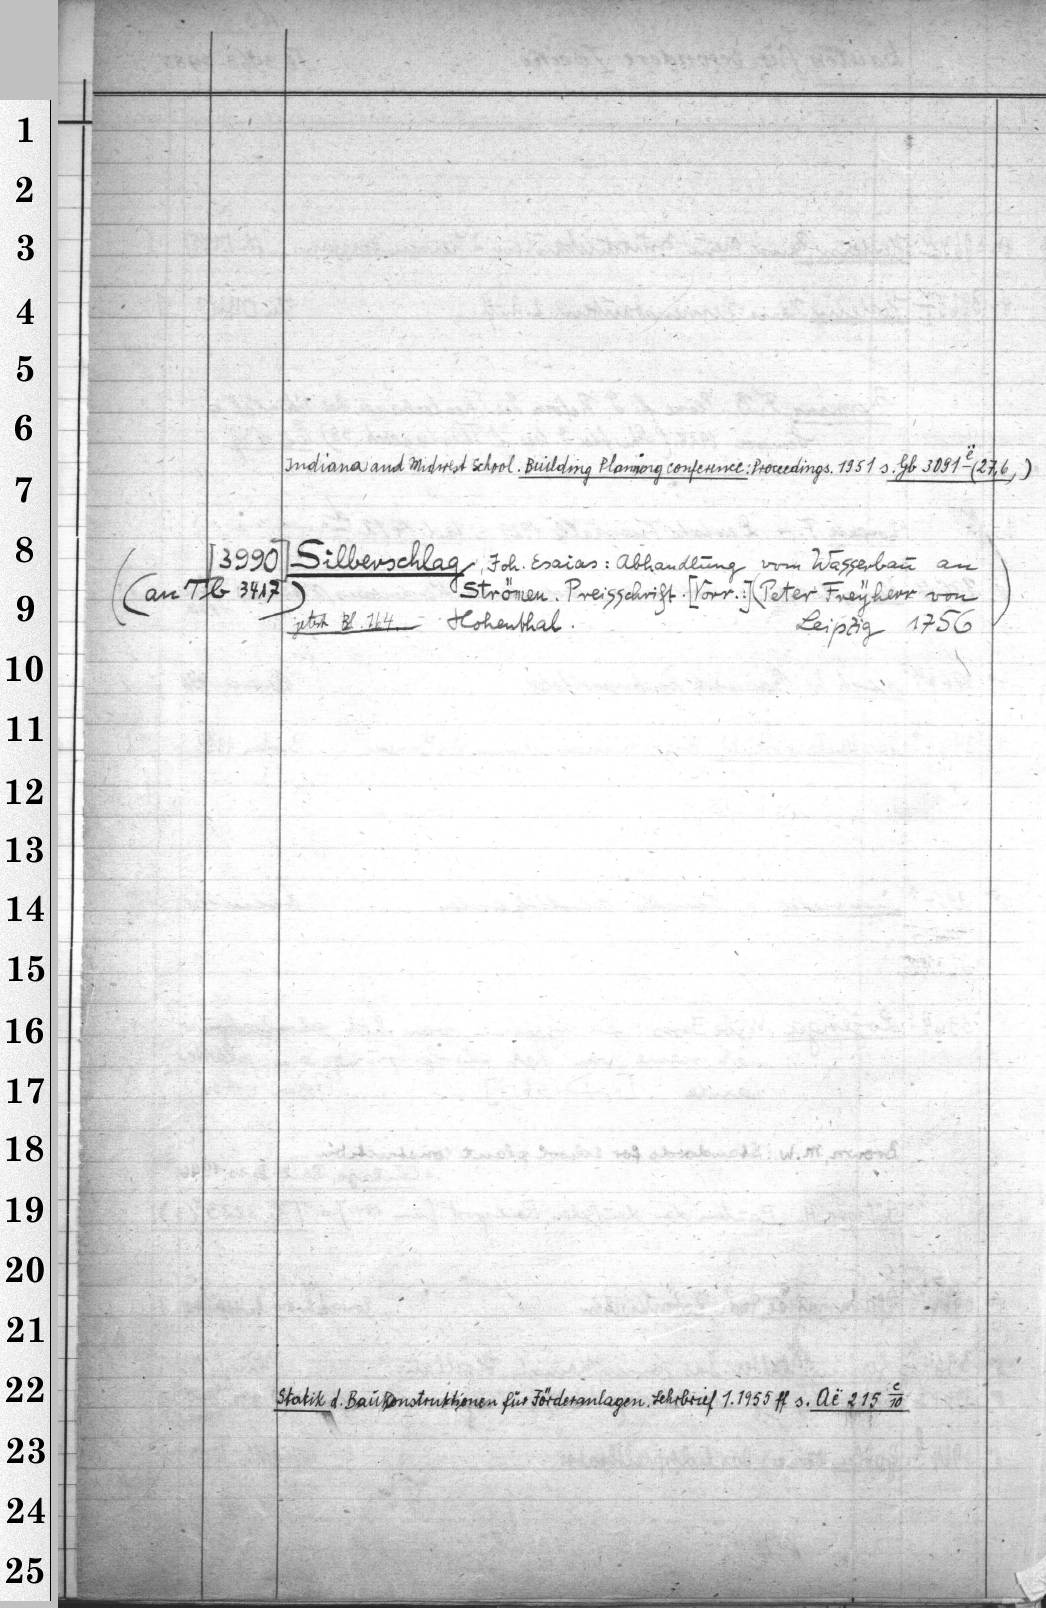 1
2
3
4
5
6
Indiana and Midwest School. Building Planning conference: Proceedings. 1951 s. Gb 3091 ë (27,6,)
7
8
[3990] Silberschlag, Joh. Esaias: Abhandlung vom Wasserbau an
9
(an Tb 3417) Strömen. Preisschrift. [Vorr.:] (Peter Freÿherr von
Bl. 164. Hohenthal. Leipzig 1756
10
11
12
13
14
15
16
17
18
19
20
21
22
Statik d. Baukonstruktionen für Förderanlagen. Lehrbrief 1.1955 ff s. Aë 215 c/10
23
24
25